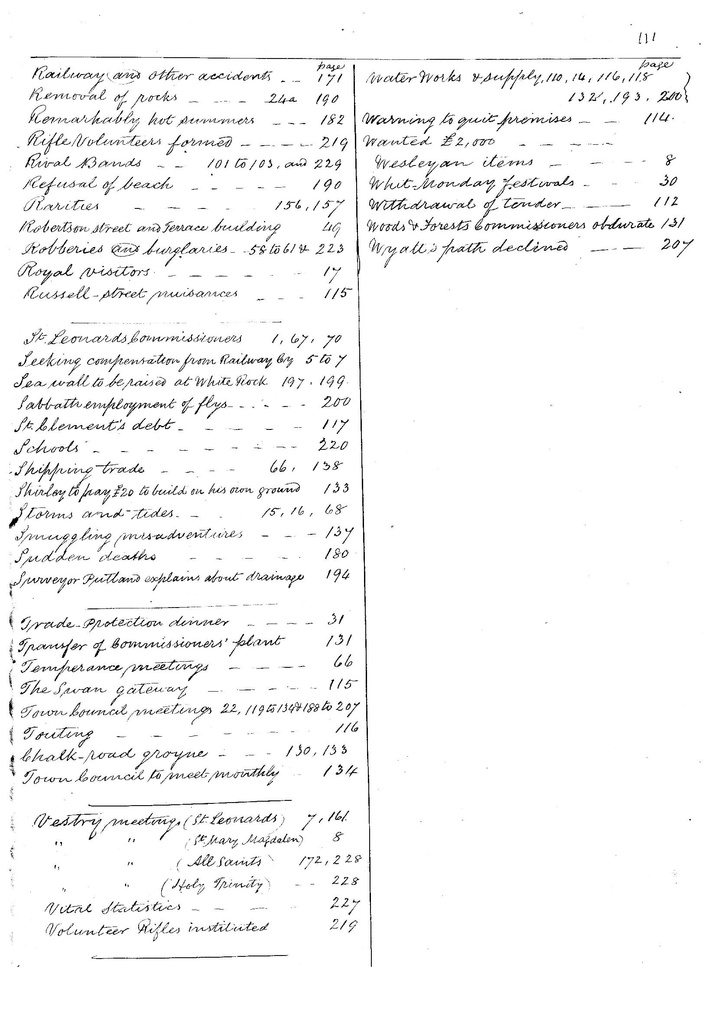 111
page
Railway and other accidents - - 171
Removal of rocks - - - - 24a 190
Remarkably hot summers - - - 182
Rifle Volunteers formed - - - - 219
Rival Bands - - 101 to 103, and 229
Refusal of beach - - - - 190
Rarities - - - - 156, 157
Robertson street and Terrace building 49
Robberies and burglaries - 58 to 61 & 223
Royal visitors - - - - - 17
Russell-street nuisances - - - 115
St. Leonards Commissioners 1, 67, 70
Seeking compensation from Railway Cy 5 to 7
Sea wall to be raised at White Rock 197, 199
Sabbath employment of flys - - - - 200
St. Clement's debt - - - - - 117
Schools - - - - - - - 220
Shipping trade - - - - 66, 138
Shirley to pay £20 to build on his own ground 133
Storms and tides - - - 15, 16, 68
Smuggling misadventures - - - - 137
Sudden deaths - - - - - 180
Surveyor Putland explains about drainage 194
Trade-Protection dinner - - - - 31
Transfer of Commissioners' plant 131
Temperance meetings - - - - 66
The Swan gateway - - - - - 115
Town Council meetings 22, 119 to 134 & 188 to 207
Touting - - - - - - 116
Chalk-road groyne - - - 130, 133
Town Council to meet monthly - - 134
Vestry meetings (St. Leonards) 7, 161
" " (St. Mary Magdalen) 8
" " (All Saints) 172, 228
" " (Holy Trinity) - - 228
Vital Statistics - - - - - 227
Volunteer Rifles instituted 219
page
Water Works & supply, 110, 14, 116, 118
132, 193, 200
Warning to quit premises - - 114.
Wanted £2,000 - - - -
Wesleyan items - - - - 8
Whit-Monday festivals - - - 30
Withdrawal of tender - - - 112
Woods & Forests Commissioners obdurate 131
Wyatt's path declined - - - - 207